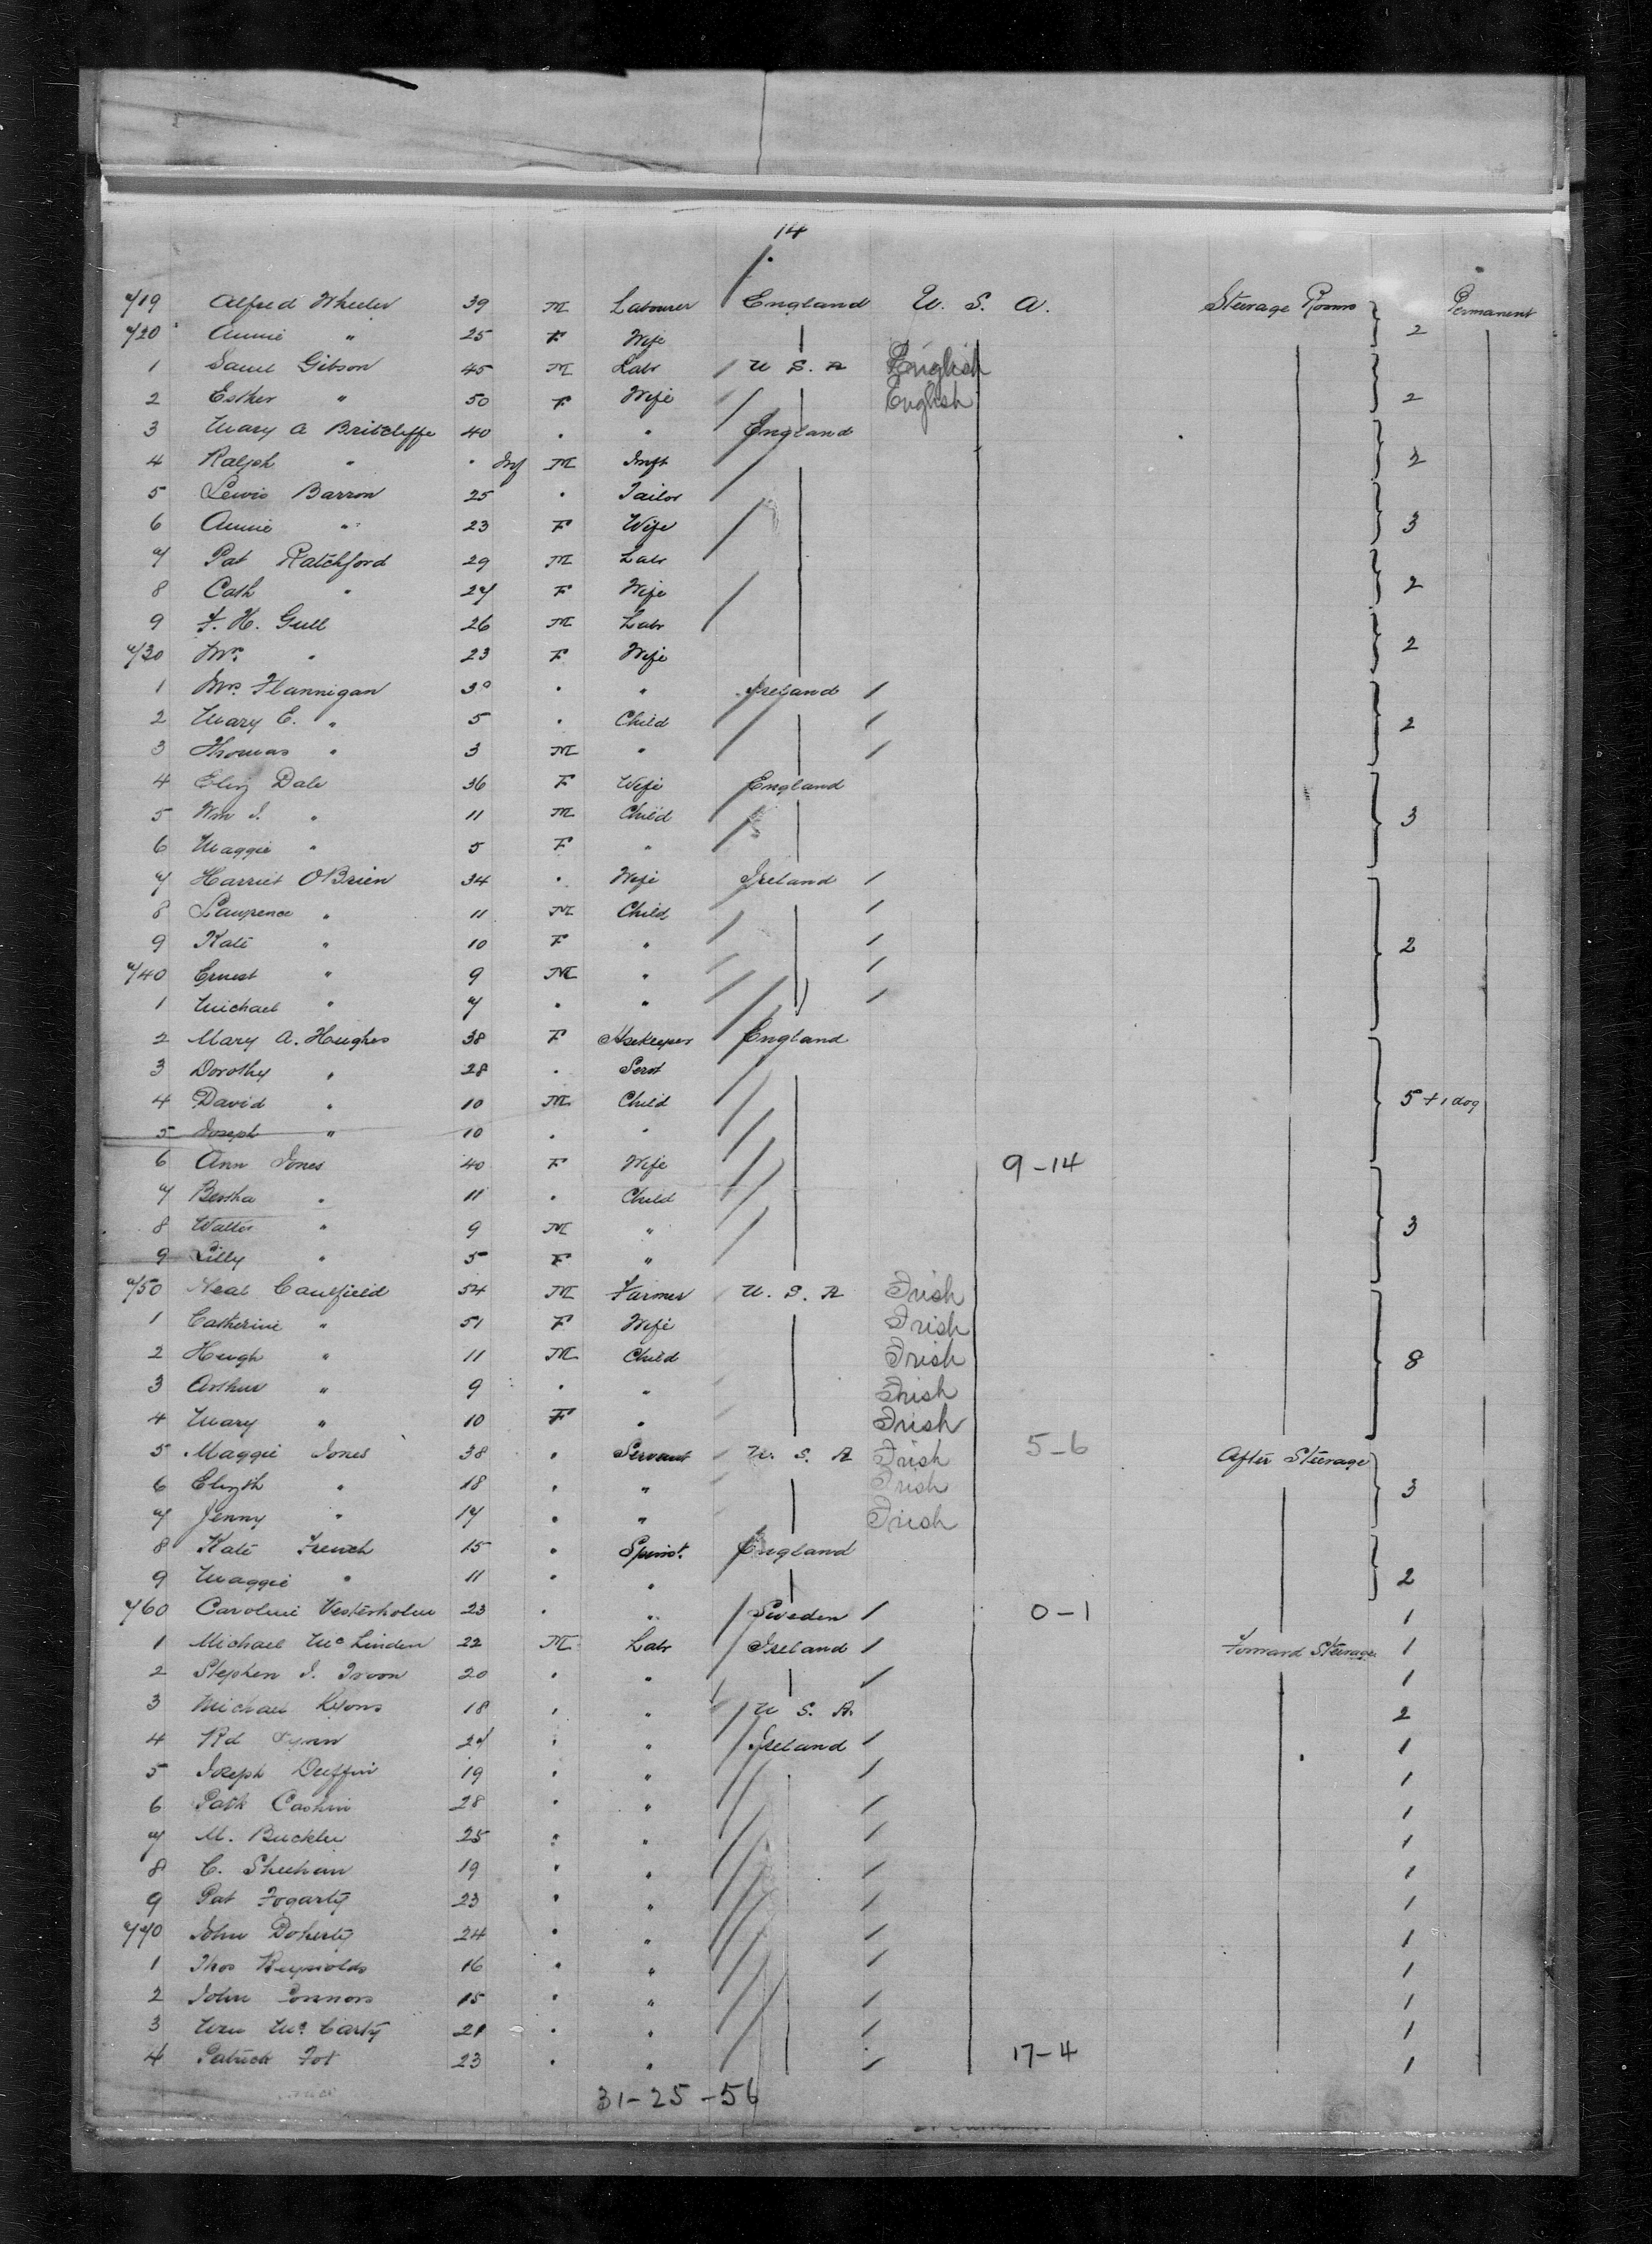 14
719 Alfred Wheeler 39 M Labourer England U. S. A. Steerage Rooms 2 Permanent
720 Annie " 25 F Wife
1 Saml Gibson 45 M Labr U S. A English
2 Esther " 50 F Wife English 2
3 Mary A Britcliffe 40 " " England
4 Ralph " " Inf M Inft 2
5 Lewis Barron 25 " Tailor
6 Annie " 23 F Wife 3
7 Pat Ratchford 29 M Labr
8 Cath " 27 F Wife 2
9 F. H. Gull 26 M Labr
730 Mrs " 23 F Wife 2
1 Mrs Flannigan 30 " " Ireland
2 Mary E. " 5 " Child 2
3 Thomas " 3 M "
4 Eliz Dale 36 F Wife England
5 Wm J. " 11 M Child 3
6 Maggie " 5 F "
7 Harriet O'Brien 34 " Wife Ireland
8 Laurence " 11 M Child
9 Kate " 10 F " 2
740 Ernest " 9 M "
1 Michael " 7 " "
2 Mary A. Hughes 38 F Hsekeeper England
3 Dorothy " 28 " Servt
4 David " 10 M Child 5 + 1 dog
5 Joseph " 10 " "
6 Ann Jones 40 F Wife 9-14
7 Bertha " 11 " Child
8 Walter " 9 M " 3
9 Lilly " 5 F "
750 Neal Caulfield 54 M Farmer U. S. A Irish
1 Catherine " 51 F Wife Irish
2 Hugh " 11 M Child Irish 8
3 Arthur " 9 " " Irish
4 Mary " 10 F " Irish
5 Maggie Jones 38 " Servant U. S. A Irish 5-6 After Steerage
6 Elizth " 18 " " Irish 3
7 Jenny " 17 " " Irish
8 Kate French 15 " Spinst. England
9 Maggie " 11 " " 2
760 Caroline Vesterholm 23 " " Sweden 0-1 1
1 Michael McLinden 22 M Labr Ireland Forward Steerage 1
2 Stephen J. 20 " " 1
3 Michael Lyons 18 " " U S. A. 2
4 Rd 24 " " Ireland 1
5 Joseph Duffin 19 " " 1
6 Patk Cashin 28 " " 1
7 M. Buckley 25 " " 1
8 C. Sheehan 19 " " 1
9 Pat Fogarty 23 " " 1
770 John Doherty 24 " " 1
1 Thos Reynolds 16 " " 1
2 John Connors 15 " " 1
3 Wm McCarty 21 " " 1
4 Patrick 23 " " 17-4 1
31-25-56